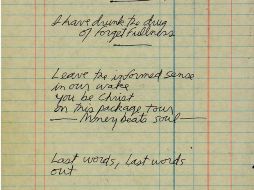 I have drunk the drug
of forgetfullness
Leave the informed sense
in our wake
you be Christ
on this package tour
— Money beats soul —
Last words, last words
out